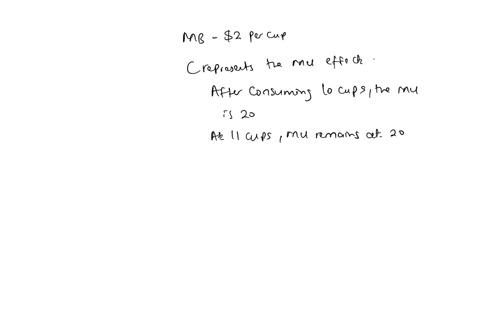 MB - $2 per cup
C represents the MU effect.
After consuming 10 cups, the MU
is 20
At 11 cups, MU remains at 20